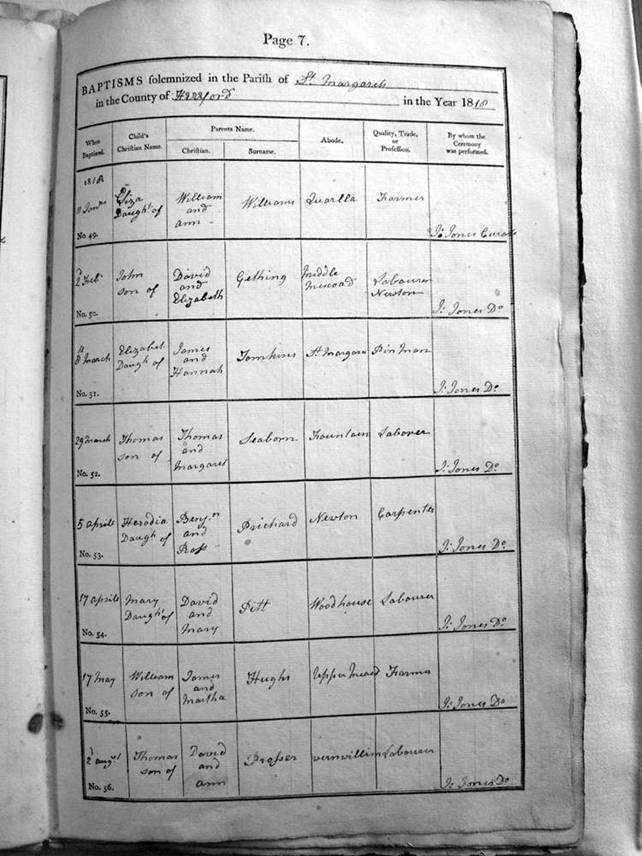 Page 7.
BAPTISMS solemnized in the Parish of St. Margarets
in the County of Hereford in the Year 1818
When Baptized. Child's Christian Name. Parents Name. Abode. Quality, Trade, or Profession. By whom the Ceremony was performed.
Christian. Surname.
1818
Eliza William Williams Quarlla Farmer
Daught of and
ann
No. 49. Js Jones Curate
2d Feb John David Gething Middle Labourer
son of and Newton
Elizabeth
No. 50. Js Jones Do
March Elizabet James Tomkins St Margare Pin Man
Daugh of and
Hannah
No. 51. Js Jones Do
29 March Thomas Thomas Seaborn Fountain Laborer
son of and
Margaret
No. 52. Js Jones Do
5 aprile Heradia Benjn Prichard Newton Carpenter
Daugh of and
No. 53. Js Jones Do
17 aprile Mary David Pitt Woodhouse Labourer
Daught of and
Mary
No. 54. Js Jones Do
17 May William James Hughs Upper Farmer
son of and
Martha
No. 55. Js Jones Do
2d augst Thomas David Prosser Labourer
son of and
ann
No. 56. Js Jones Do